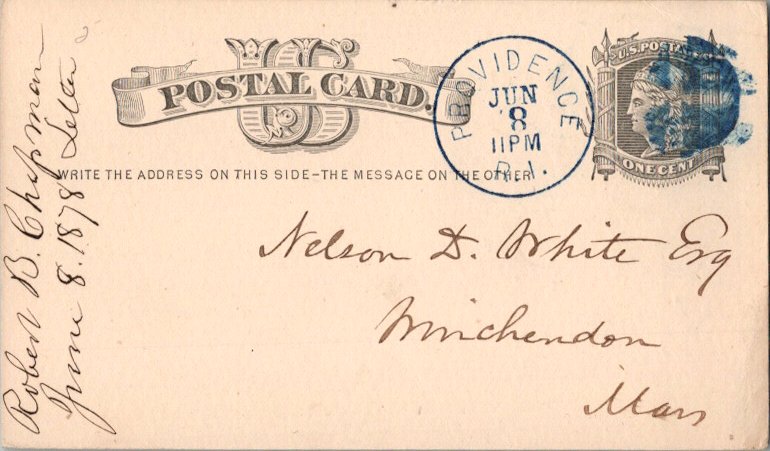 US
POSTAL CARD.
WRITE THE ADDRESS ON THIS SIDE–THE MESSAGE ON THE OTHER
PROVIDENCE
JUN
8
11PM
R.I.
U.S. POSTAGE
ONE CENT
Nelson D. White Esq
Winchendon
Mass
Robert B. Chapman
June 8. 1878 Letter